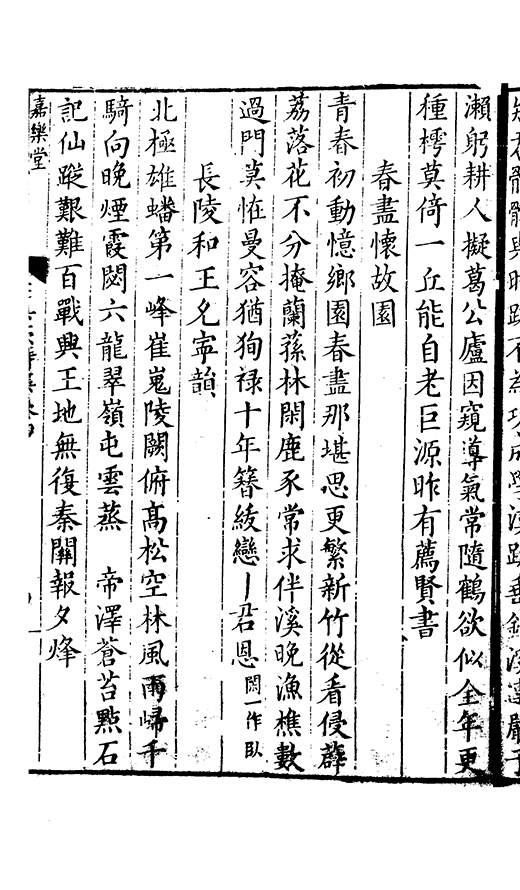 瀨躬耕人擬葛公廬因窺導氣常隨鶴欲似全年更
種樗莫倚一丘能自老巨源昨有薦賢書
春盡懷故園
青春初動憶鄉園春盡那堪思更繁新竹從看侵薜
荔落花不分掩蘭蓀林閑鹿豕常求伴溪晚漁樵數
過門莫恠曼容猶狗祿十年簪紱戀君恩閑一作臥
長陵和王允寧韻
北極雄蟠第一峰崔嵬陵闕俯高松空林風雨歸千
騎向晚煙霞閟六龍翠嶺屯雲蒸 帝澤蒼苔點石
記仙蹤艱難百戰興王地無復秦關報夕烽
嘉樂堂